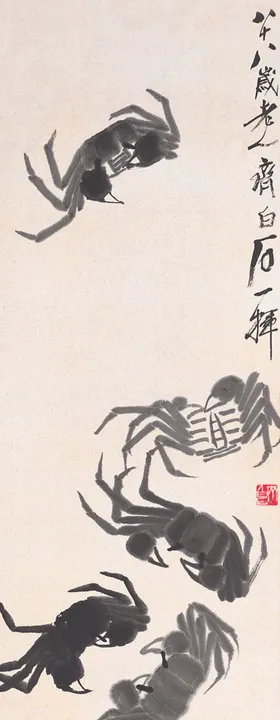 八十八歲老人齊白石一揮